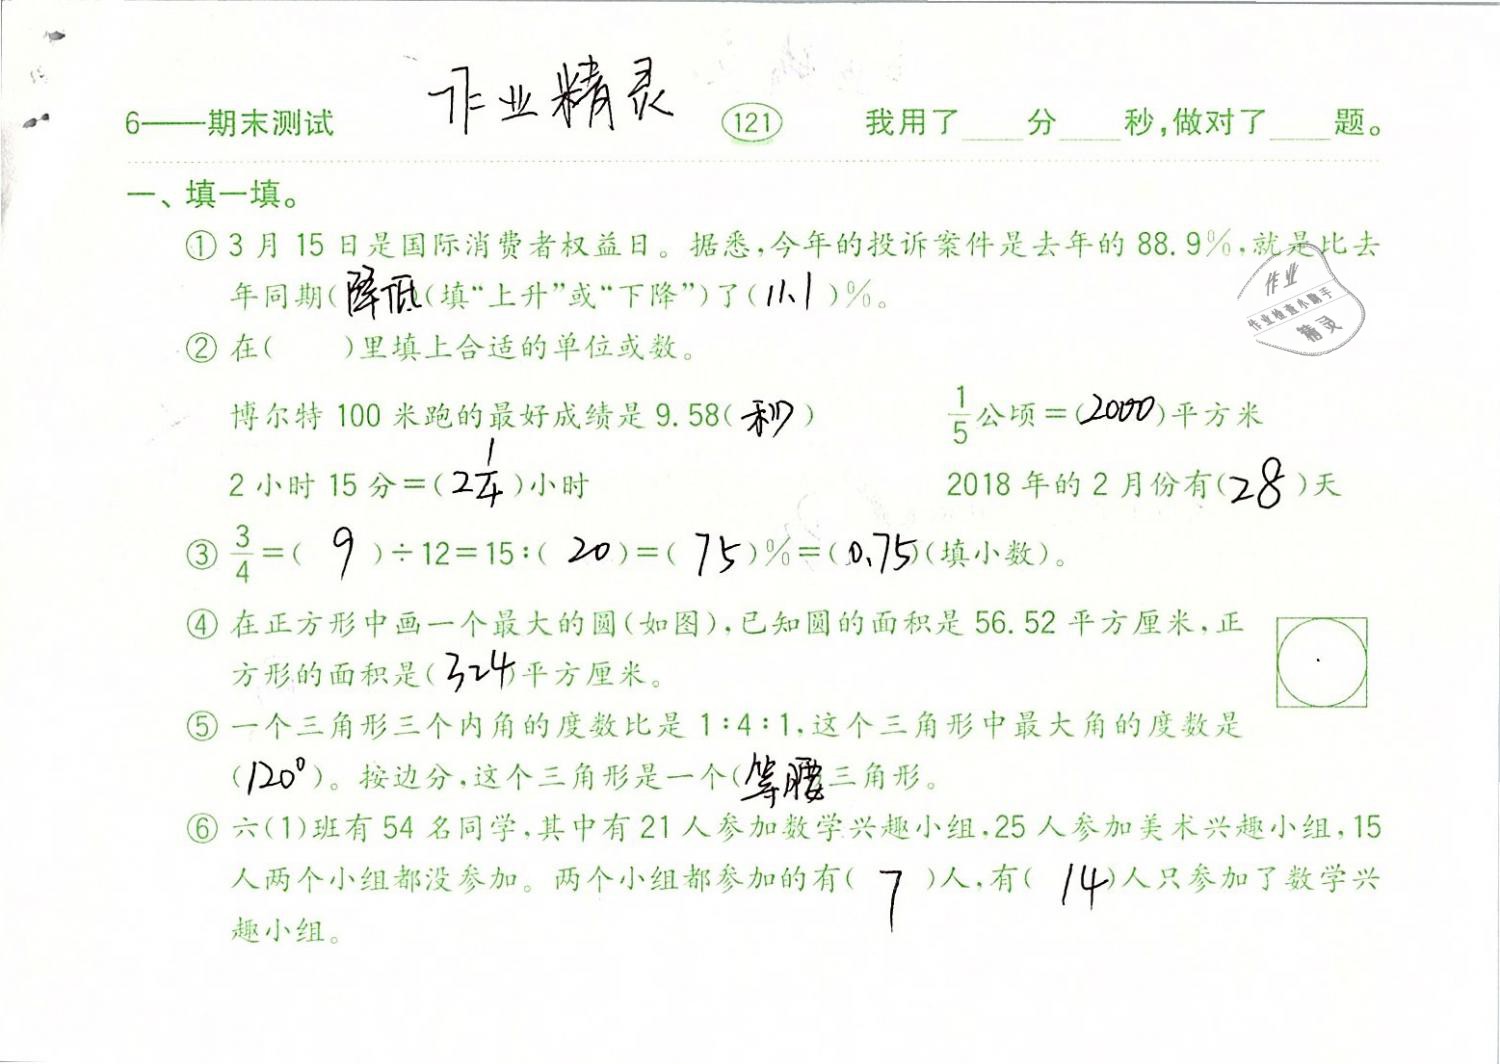 作业精灵
6——期末测试 121 我用了____分____秒,做对了____题。
一、填一填。
① 3月15日是国际消费者权益日。据悉,今年的投诉案件是去年的88.9%,就是比去
年同期(降低)(填“上升”或“下降”)了(11.1)%。
作业
作业检查小助手
精灵
② 在(  )里填上合适的单位或数。
博尔特100米跑的最好成绩是9.58(秒) 1/5公顷=(2000)平方米
2小时15分=(2 1/4)小时 2018年的2月份有(28)天
③ 3/4=( 9 )÷12=15:( 20 )=( 75 )%=(0.75)(填小数)。
④ 在正方形中画一个最大的圆(如图),已知圆的面积是56.52平方厘米,正
方形的面积是(324)平方厘米。
⑤ 一个三角形三个内角的度数比是1:4:1,这个三角形中最大角的度数是
(120°)。按边分,这个三角形是一个(等腰)三角形。
⑥ 六(1)班有54名同学,其中有21人参加数学兴趣小组,25人参加美术兴趣小组,15
人两个小组都没参加。两个小组都参加的有( 7 )人,有( 14 )人只参加了数学兴
趣小组。